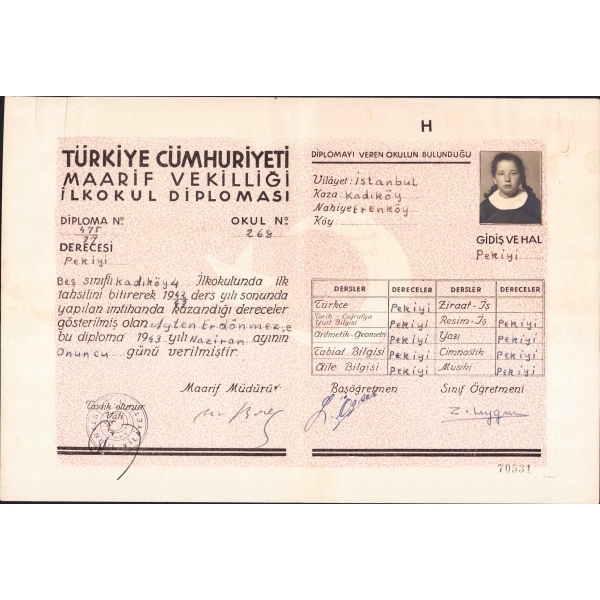 H
TÜRKİYE CÜMHURİYETİ
MAARİF VEKİLLİĞİ
İLKOKUL DİPLOMASI
DİPLOMA No
475
27
OKUL No
268
DERECESİ
Pekiyi
Beş sınıflı Kadıköy 4 İlkokulunda ilk
tahsilini bitirerek 1943 ders yılı sonunda
yapılan imtihanda kazandığı dereceler
gösterilmiş olan Ayten Erdönmez,e
bu diploma 1943 yılı Haziran ayının
Onuncu günü verilmiştir.
Maarif Müdürü
Tasdik olunur
Vali
DİPLOMAYI VEREN OKULUN BULUNDUĞU
Vilâyet: İstanbul
Kaza Kadıköy
Nahiye Erenköy
Köy
GİDİŞ VE HAL
Pekiyi
DERSLER DERECELER DERSLER DERECELER
Türkçe Pekiyi Ziraat-İş
Tarih-Coğrafya Yurt Bilgisi Pekiyi Resim-İş Pekiyi
Aritmetik-Geometri Pekiyi Yazı Pekiyi
Tabiat Bilgisi Pekiyi Cimnastik Pekiyi
Aile Bilgisi Pekiyi Musiki Pekiyi
Başöğretmen Sınıf Öğretmeni
70531